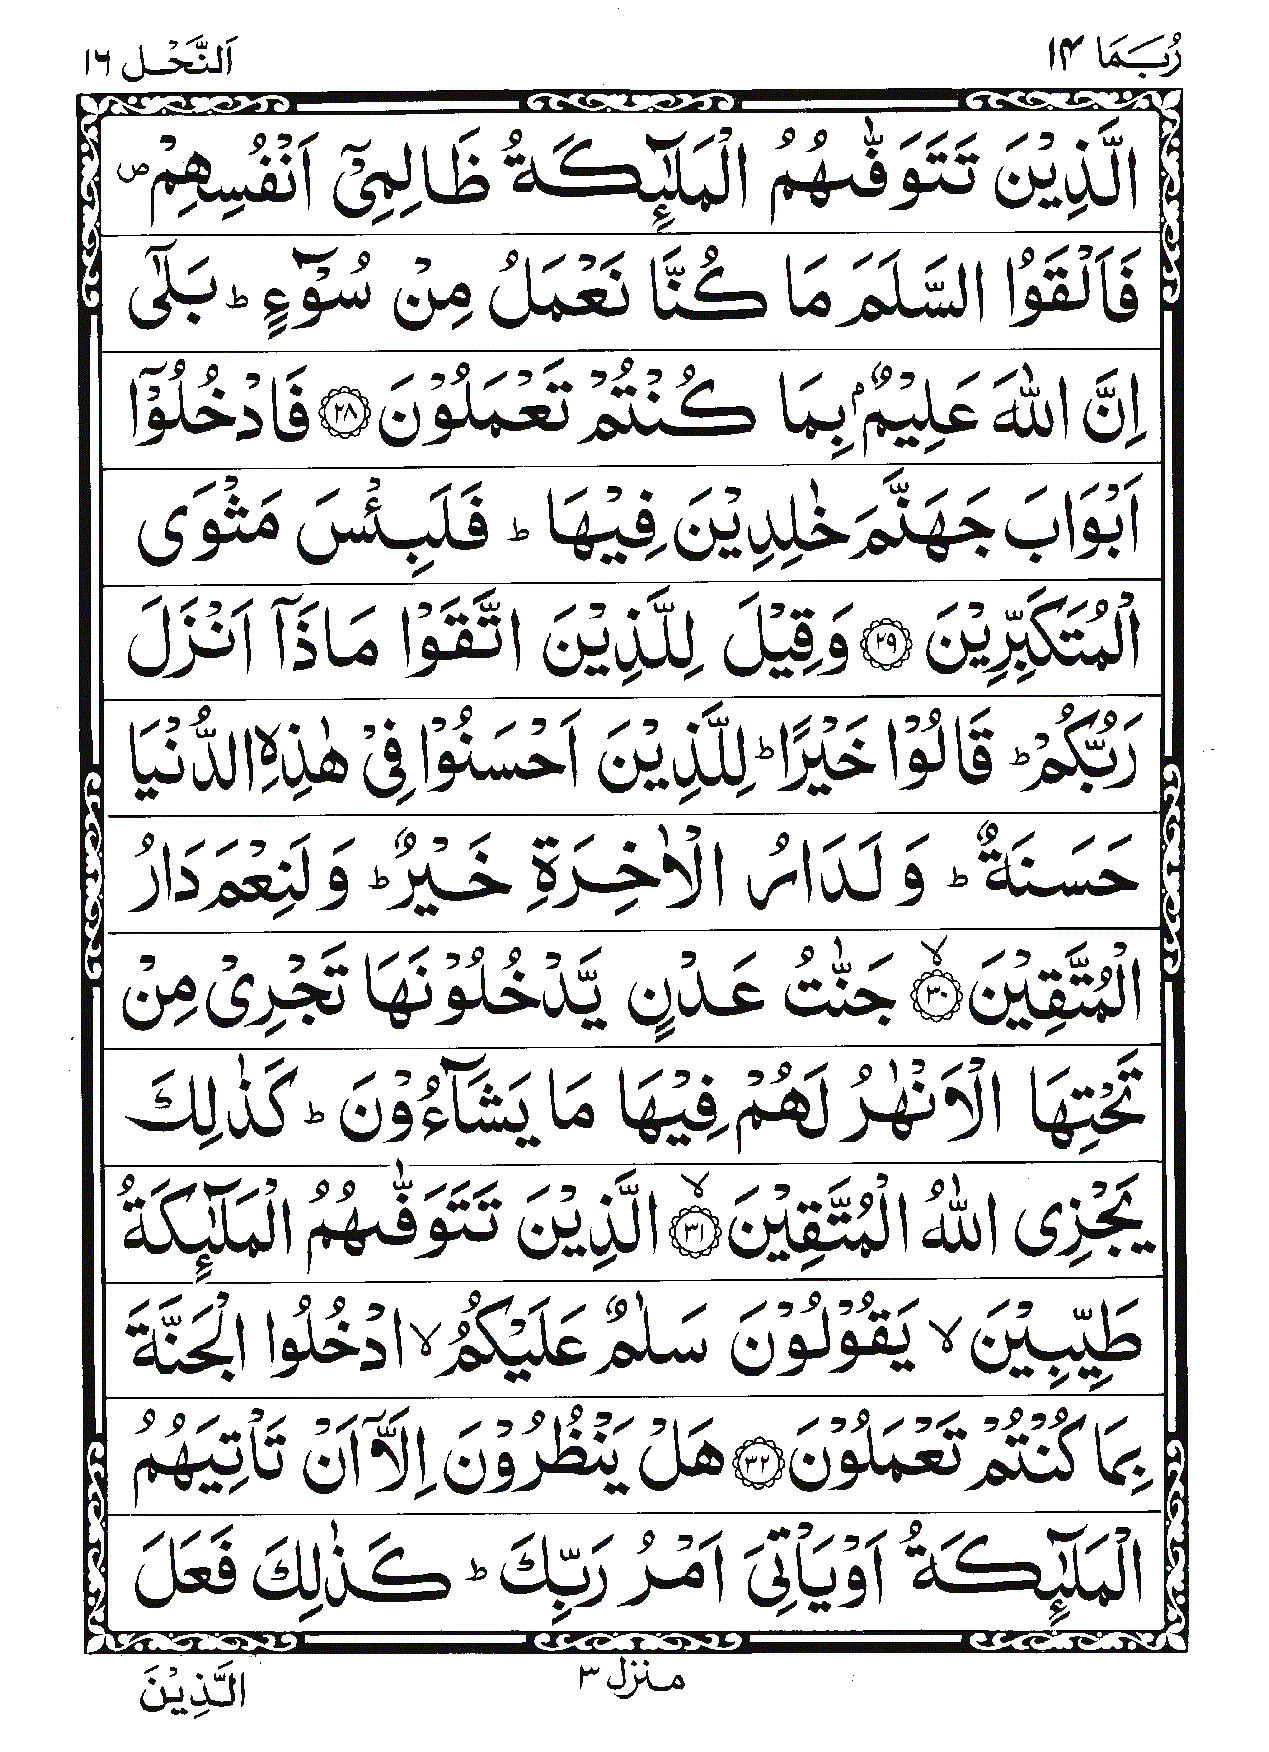 رُبَمَا ١٤ اَلنَّحْل ١٦
الَّذِيْنَ تَتَوَفّٰىهُمُ الْمَلٰٓئِكَةُ ظَالِمِيْٓ اَنْفُسِهِمْ ص
فَاَلْقَوُا السَّلَمَ مَا كُنَّا نَعْمَلُ مِنْ سُوْٓءٍ ط بَلٰٓى
اِنَّ اللّٰهَ عَلِيْمٌۢ بِمَا كُنْتُمْ تَعْمَلُوْنَ ٢٨ فَادْخُلُوْٓا
اَبْوَابَ جَهَنَّمَ خٰلِدِيْنَ فِيْهَا ط فَلَبِئْسَ مَثْوَى
الْمُتَكَبِّرِيْنَ ٢٩ وَقِيْلَ لِلَّذِيْنَ اتَّقَوْا مَاذَآ اَنْزَلَ
رَبُّكُمْ ط قَالُوْا خَيْرًا ط لِلَّذِيْنَ اَحْسَنُوْا فِيْ هٰذِهِ الدُّنْيَا
حَسَنَةٌ ط وَ لَدَارُ الْاٰخِرَةِ خَيْرٌ ط وَ لَنِعْمَ دَارُ
الْمُتَّقِيْنَ لا ٣٠ جَنّٰتُ عَدْنٍ يَّدْخُلُوْنَهَا تَجْرِيْ مِنْ
تَحْتِهَا الْاَنْهٰرُ لَهُمْ فِيْهَا مَا يَشَآءُوْنَ ط كَذٰلِكَ
يَجْزِى اللّٰهُ الْمُتَّقِيْنَ لا ٣١ الَّذِيْنَ تَتَوَفّٰىهُمُ الْمَلٰٓئِكَةُ
طَيِّبِيْنَ لا يَقُوْلُوْنَ سَلٰمٌ عَلَيْكُمُ لا ادْخُلُوا الْجَنَّةَ
بِمَا كُنْتُمْ تَعْمَلُوْنَ ٣٢ هَلْ يَنْظُرُوْنَ اِلَّآ اَنْ تَاْتِيَهُمُ
الْمَلٰٓئِكَةُ اَوْ يَاْتِيَ اَمْرُ رَبِّكَ ط كَذٰلِكَ فَعَلَ
منزل ٣
الَّذِيْنَ